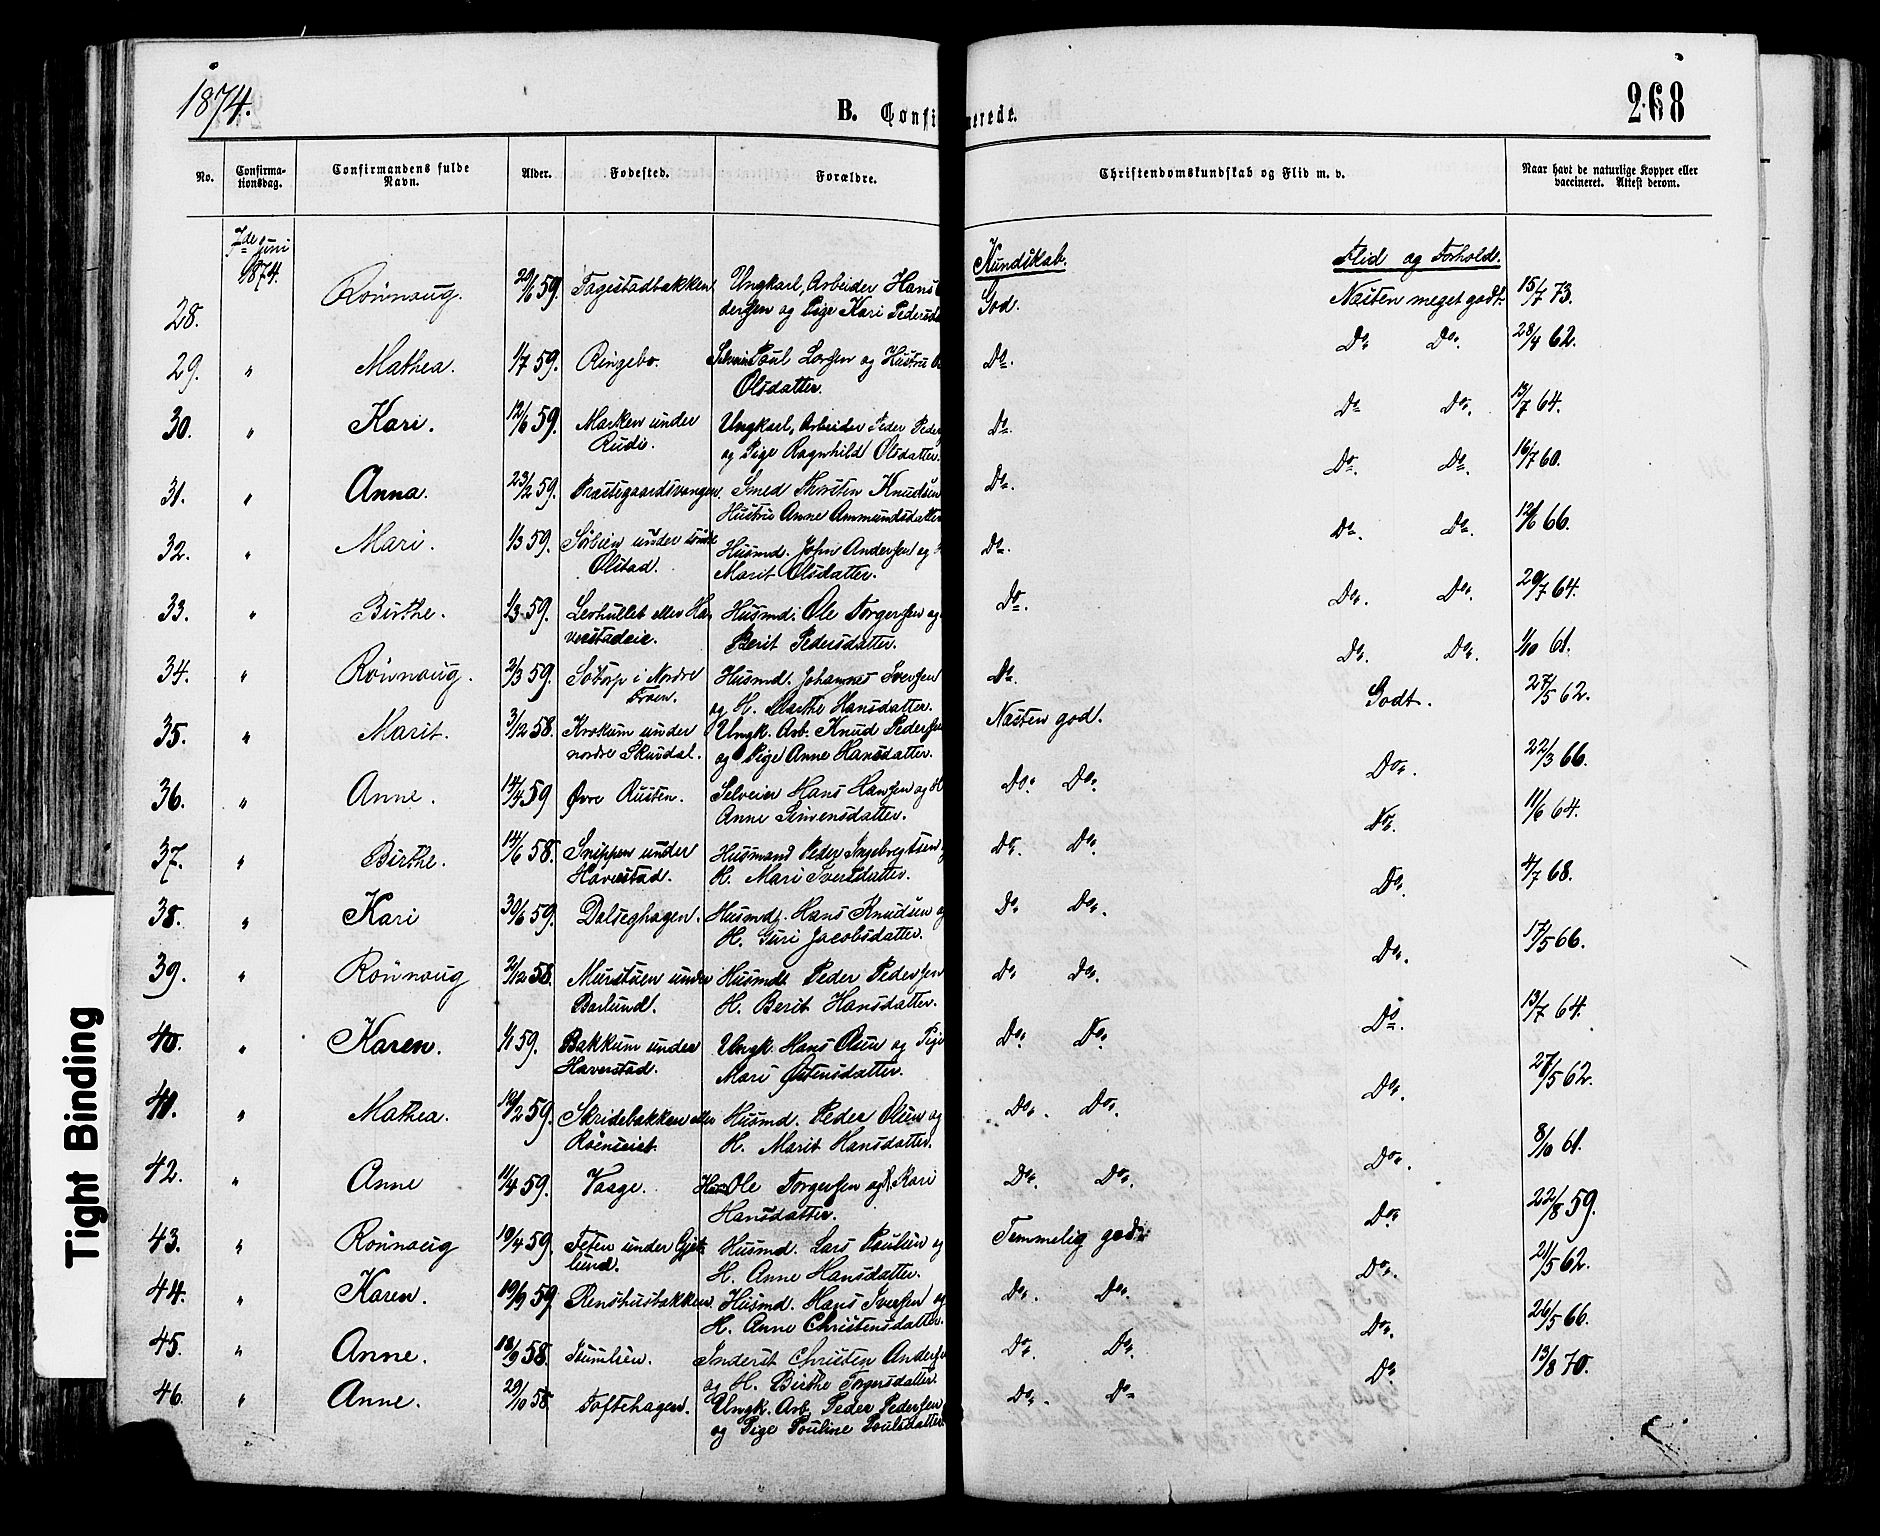 1874.
B. Confi
merede.
268
No.
Confirma-
tionsdag.
Confirmandens fulde
Navn.
Alder.
Fødested.
Forældre.
Christendomskundskab og Flid m. v.
Naar havt de naturlige Kopper eller
vaccineret. Attest derom.
7de Juni
1874.
Kundskab.
Flid og Forhold.
28. Rønnaug. 29/6 59. Fagestadbakken Ungkarl, Arbeider Hans God. Næsten meget godt. 15/7 73.
dersen og Pige Kari Pedersd
29. " Mathea. 1/7 59. Ringebo. Poul Larsen og Hustru Do. Do. Do. 28/4 62.
Olsdatter.
30. " Kari. 12/6 59. Marken under Ungkarl, Arbeider Peder Peder Do. Do. Do. 13/7 64.
Rudie. og Pige Ragnhild Olsdatter.
31. " Anna. 23/2 59. Præstegaardsvangen. Smed Thorsten Knudsen Do. Do. Do. 16/7 60.
Hustru Anne Ammundsdatter
32. " Mari. 1/3 59. under søndr Husmd. John Andersen og Do. Do. Do. 12/6 66.
Ølstad. Marit Olsdatter.
33. " Birthe. 1/3 59. Lerhullet eller Ha- Husmd. Ole Torgersen og Do. Do. Do. 29/7 64.
verstadeie. Berit Pedersdatter.
34. " Rønnaug. 2/3 59. Sødorp i Nordre Husmd. Johannes Iversen Do. Do. Do. 1/10 61.
Fron. og H. Marthe Hansdatter.
35. " Marit. 3/12 58. Krokum under Ungk. Arb. Knud Pedersen Næsten god. Godt. 27/5 62.
nordre Skurdal. og Pige Anne Hansdatter.
36. " Anne. 14/4 59 Øvre Rusten. Selveier Hans Hansen og H Do. Do. Do. 22/3 66.
Anne Simensdatter.
37. " Birthe. 14/6 58. Snippen under Husmand Peder Ingebregtsen Do. Do. Do. 11/6 64.
Haverstad. H. Mari Iversdatter.
38. " Kari 30/6 59. Dalseghagen. Husmd. Hans Knudsen og Do. Do. Do. 4/7 68.
H. Guri Jacobsdatter.
39. " Rønnaug 2/12 58. Murstuen under Husmd. Peder Pedersen Do. Do. Do. 17/5 66.
Barlund. H. Berit Hansdatter.
40. " Karen. 1/1 59. Bakkum under Ungk. Hans Olsen og Pige Do. Do. Do. 13/7 64.
Haverstad. Mari Østensdatter.
41. " Mathea. 19/2 59. Skridebakken eller Husmd. Peder Olsen og Do. Do. Do. 27/5 62.
H. Marit Hansdatter.
42. " Anne 11/4 59. Vaage. Ole Torgersen og H. Kari Do. Do. Do. 8/10 61.
Hansdatter.
43. " Rønnaug 19/4 59. under Gjet- Husmd. Lars Poulsen og Temmelig god. Do. 22/8 59.
lund. H. Anne Hansdatter.
44. " Karen. 19/9 59. Renshusbakken. Husmd. Hans Iversen og Do. Do. Do. 21/5 62.
H. Anne Christensdatter.
45. " Anne. 18/9 58. Inderst Christen Anderse Do. Do. Do. 26/5 66.
og H. Birthe Torgersdatter.
46. " Anne. 29/10 58. Toftehagen. Ungk. Arb. Peder Pedersen Do. Do Do 13/8 70.
og Pige Pouline Poulsdatter.
Tight Binding